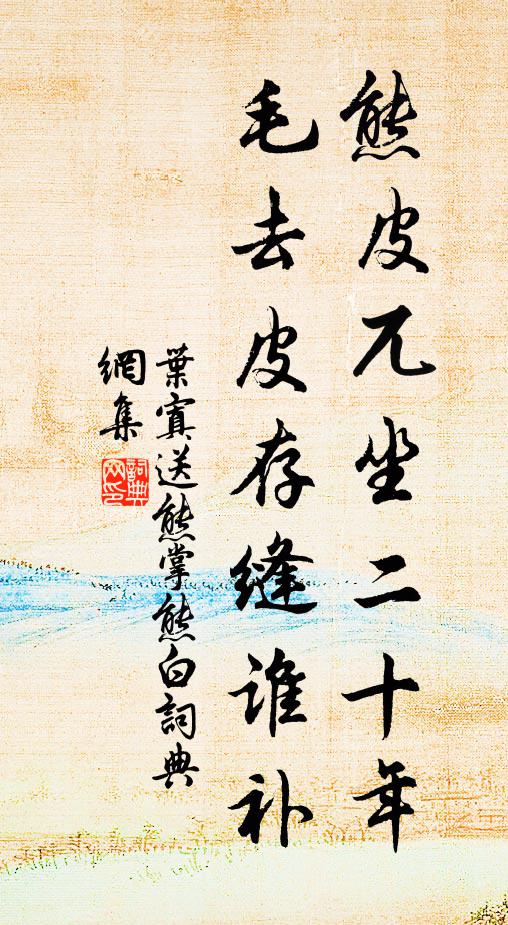 熊皮兀坐二十年
毛去皮存缝谁补
葉寘送熊掌熊白詞典
網集
詞典
网印